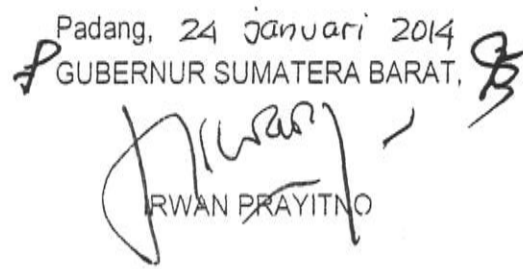 Padang, 24 Januari 2014
GUBERNUR SUMATERA BARAT,
IRWAN PRAYITNO